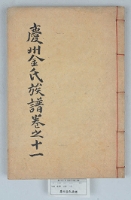 慶州金氏族譜卷之十一